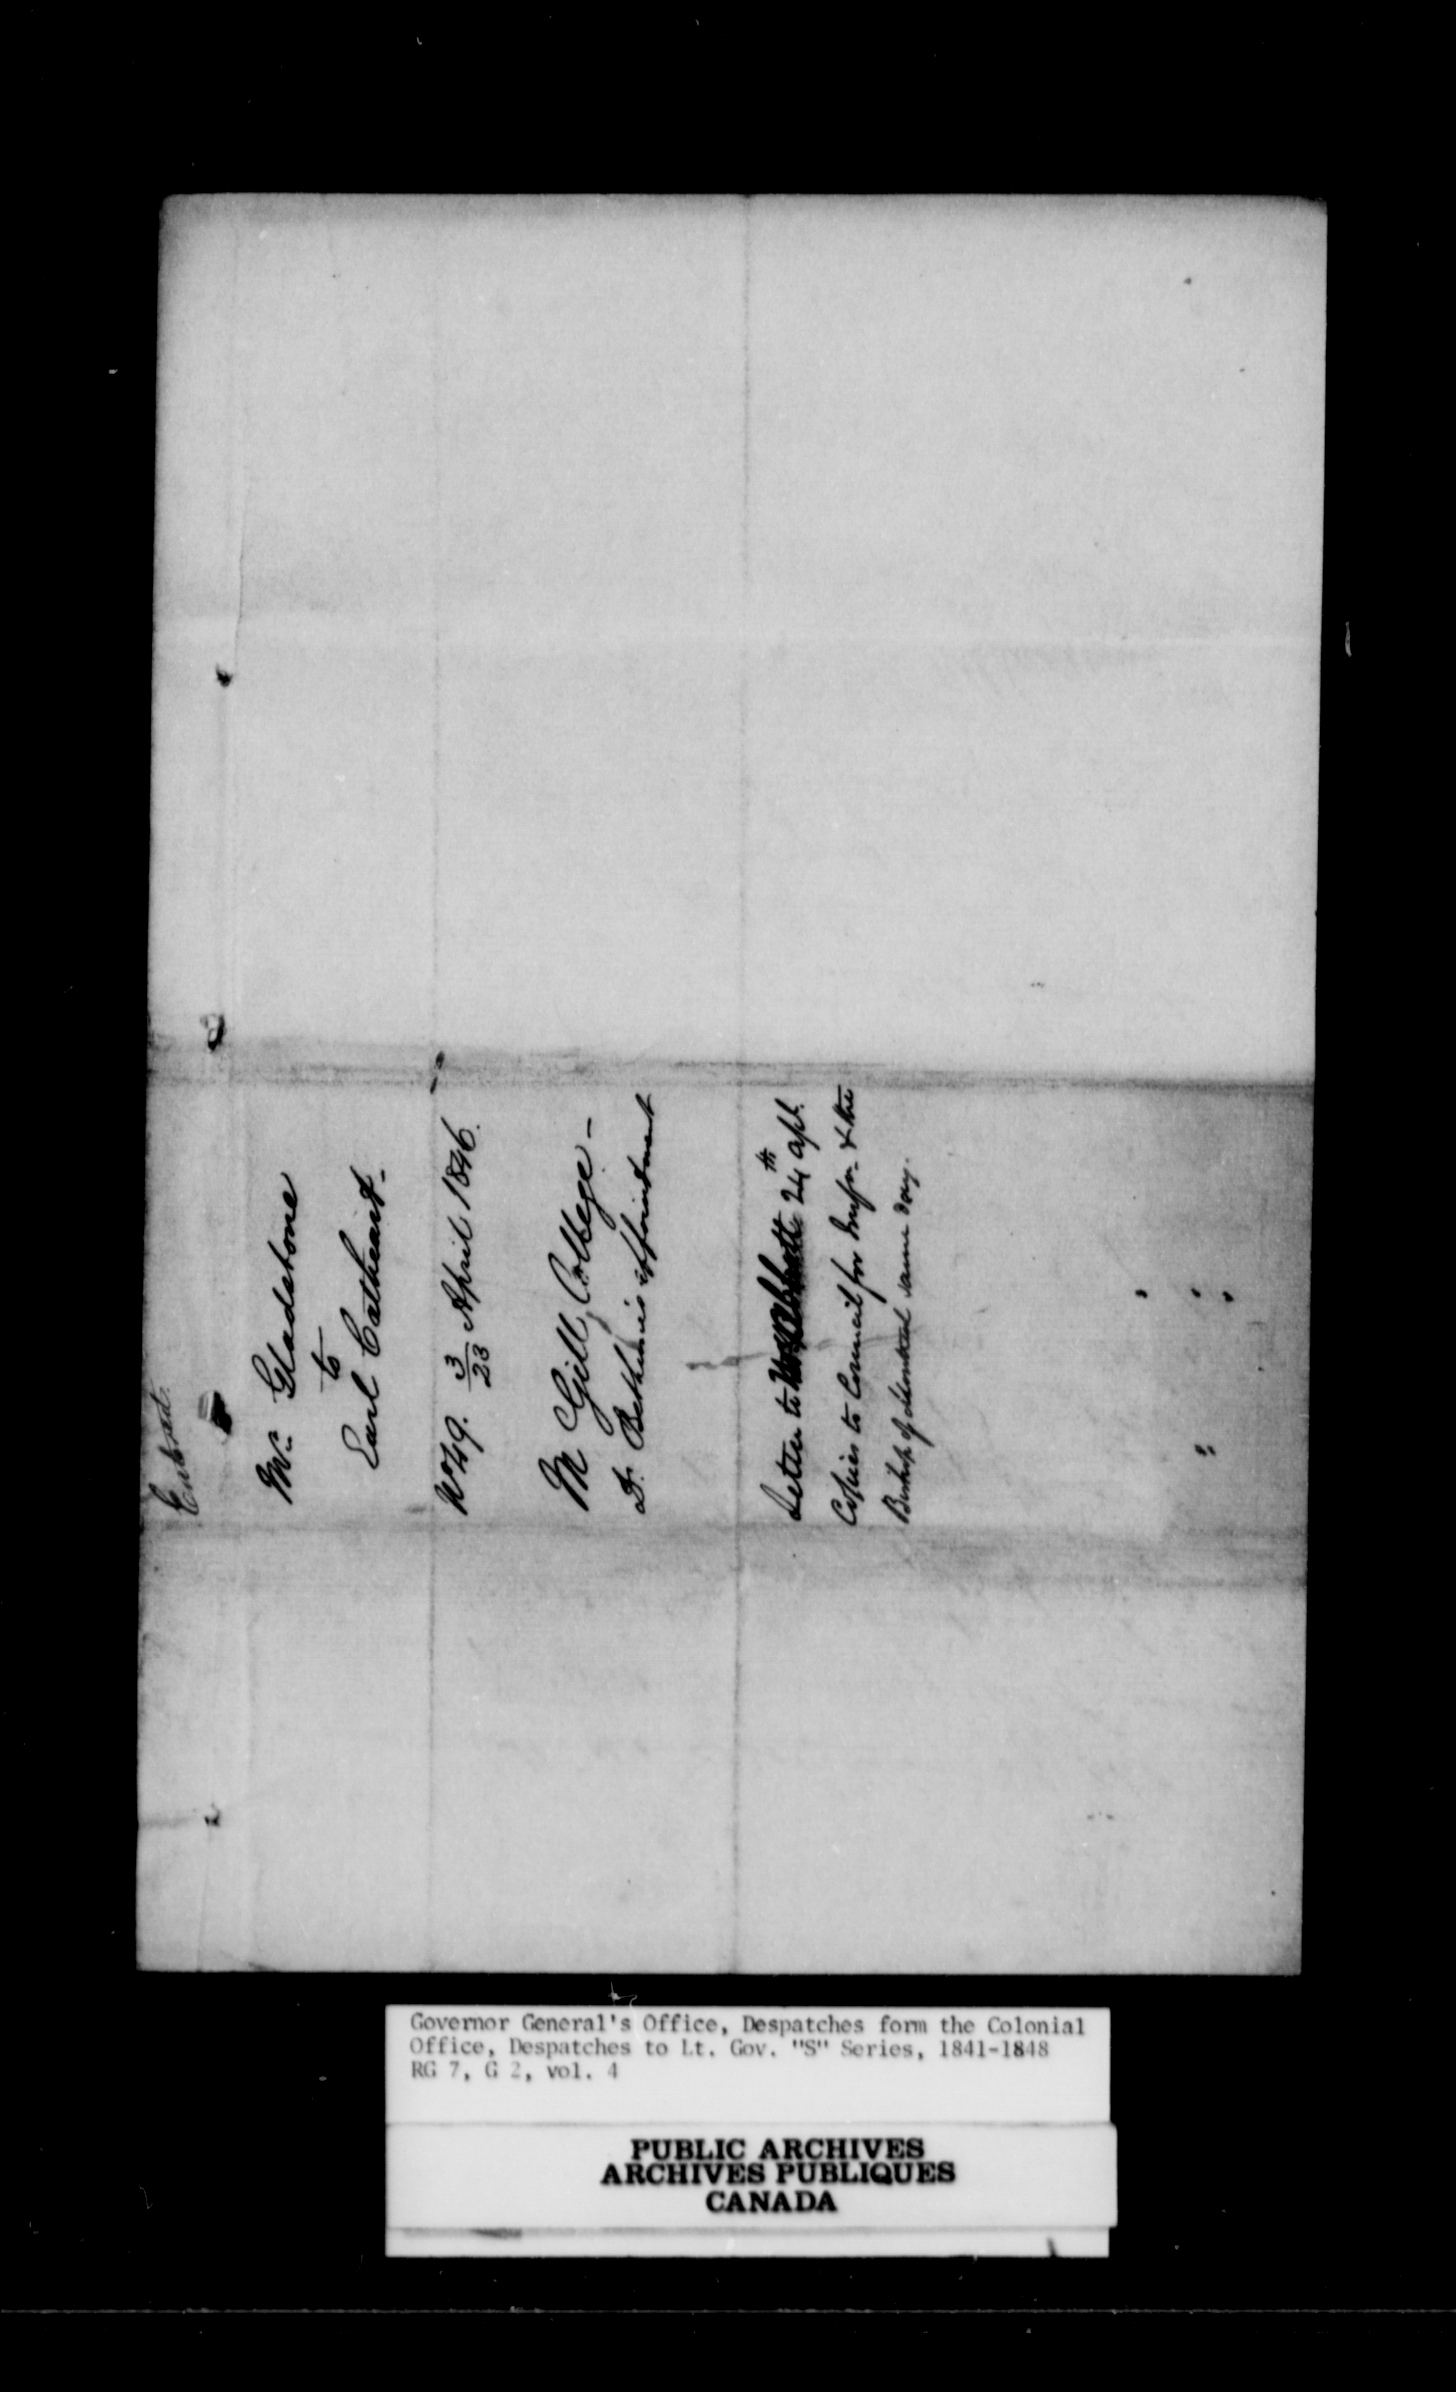 Entered
Mr. Gladstone
to
Earl Cathcart -
No 49. 3/23 April 1846.
McGill College -
Dr. Bethune's appointment
Letter to 24th apl.
Copies to Council for Infn. & the
Bishop of Montreal same day.
Governor General's Office, Despatches form the Colonial
Office, Despatches to Lt. Gov. "S" Series, 1841-1848
RG 7, G 2, vol. 4
PUBLIC ARCHIVES
ARCHIVES PUBLIQUES
CANADA